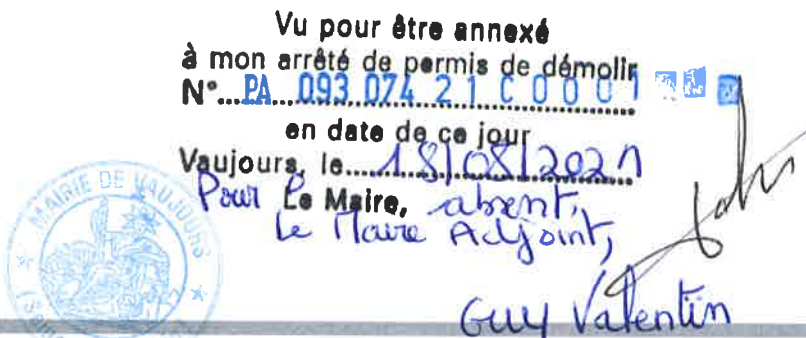 Vu pour être annexé
à mon arrêté de permis de démolir
N°....PA...093.074 21 C 0001
en date de ce jour
Vaujours, le.....18/08/2021
Pour Le Maire, absent,
Le Maire Adjoint,
Guy Valentin
MAIRIE DE VAUJOURS